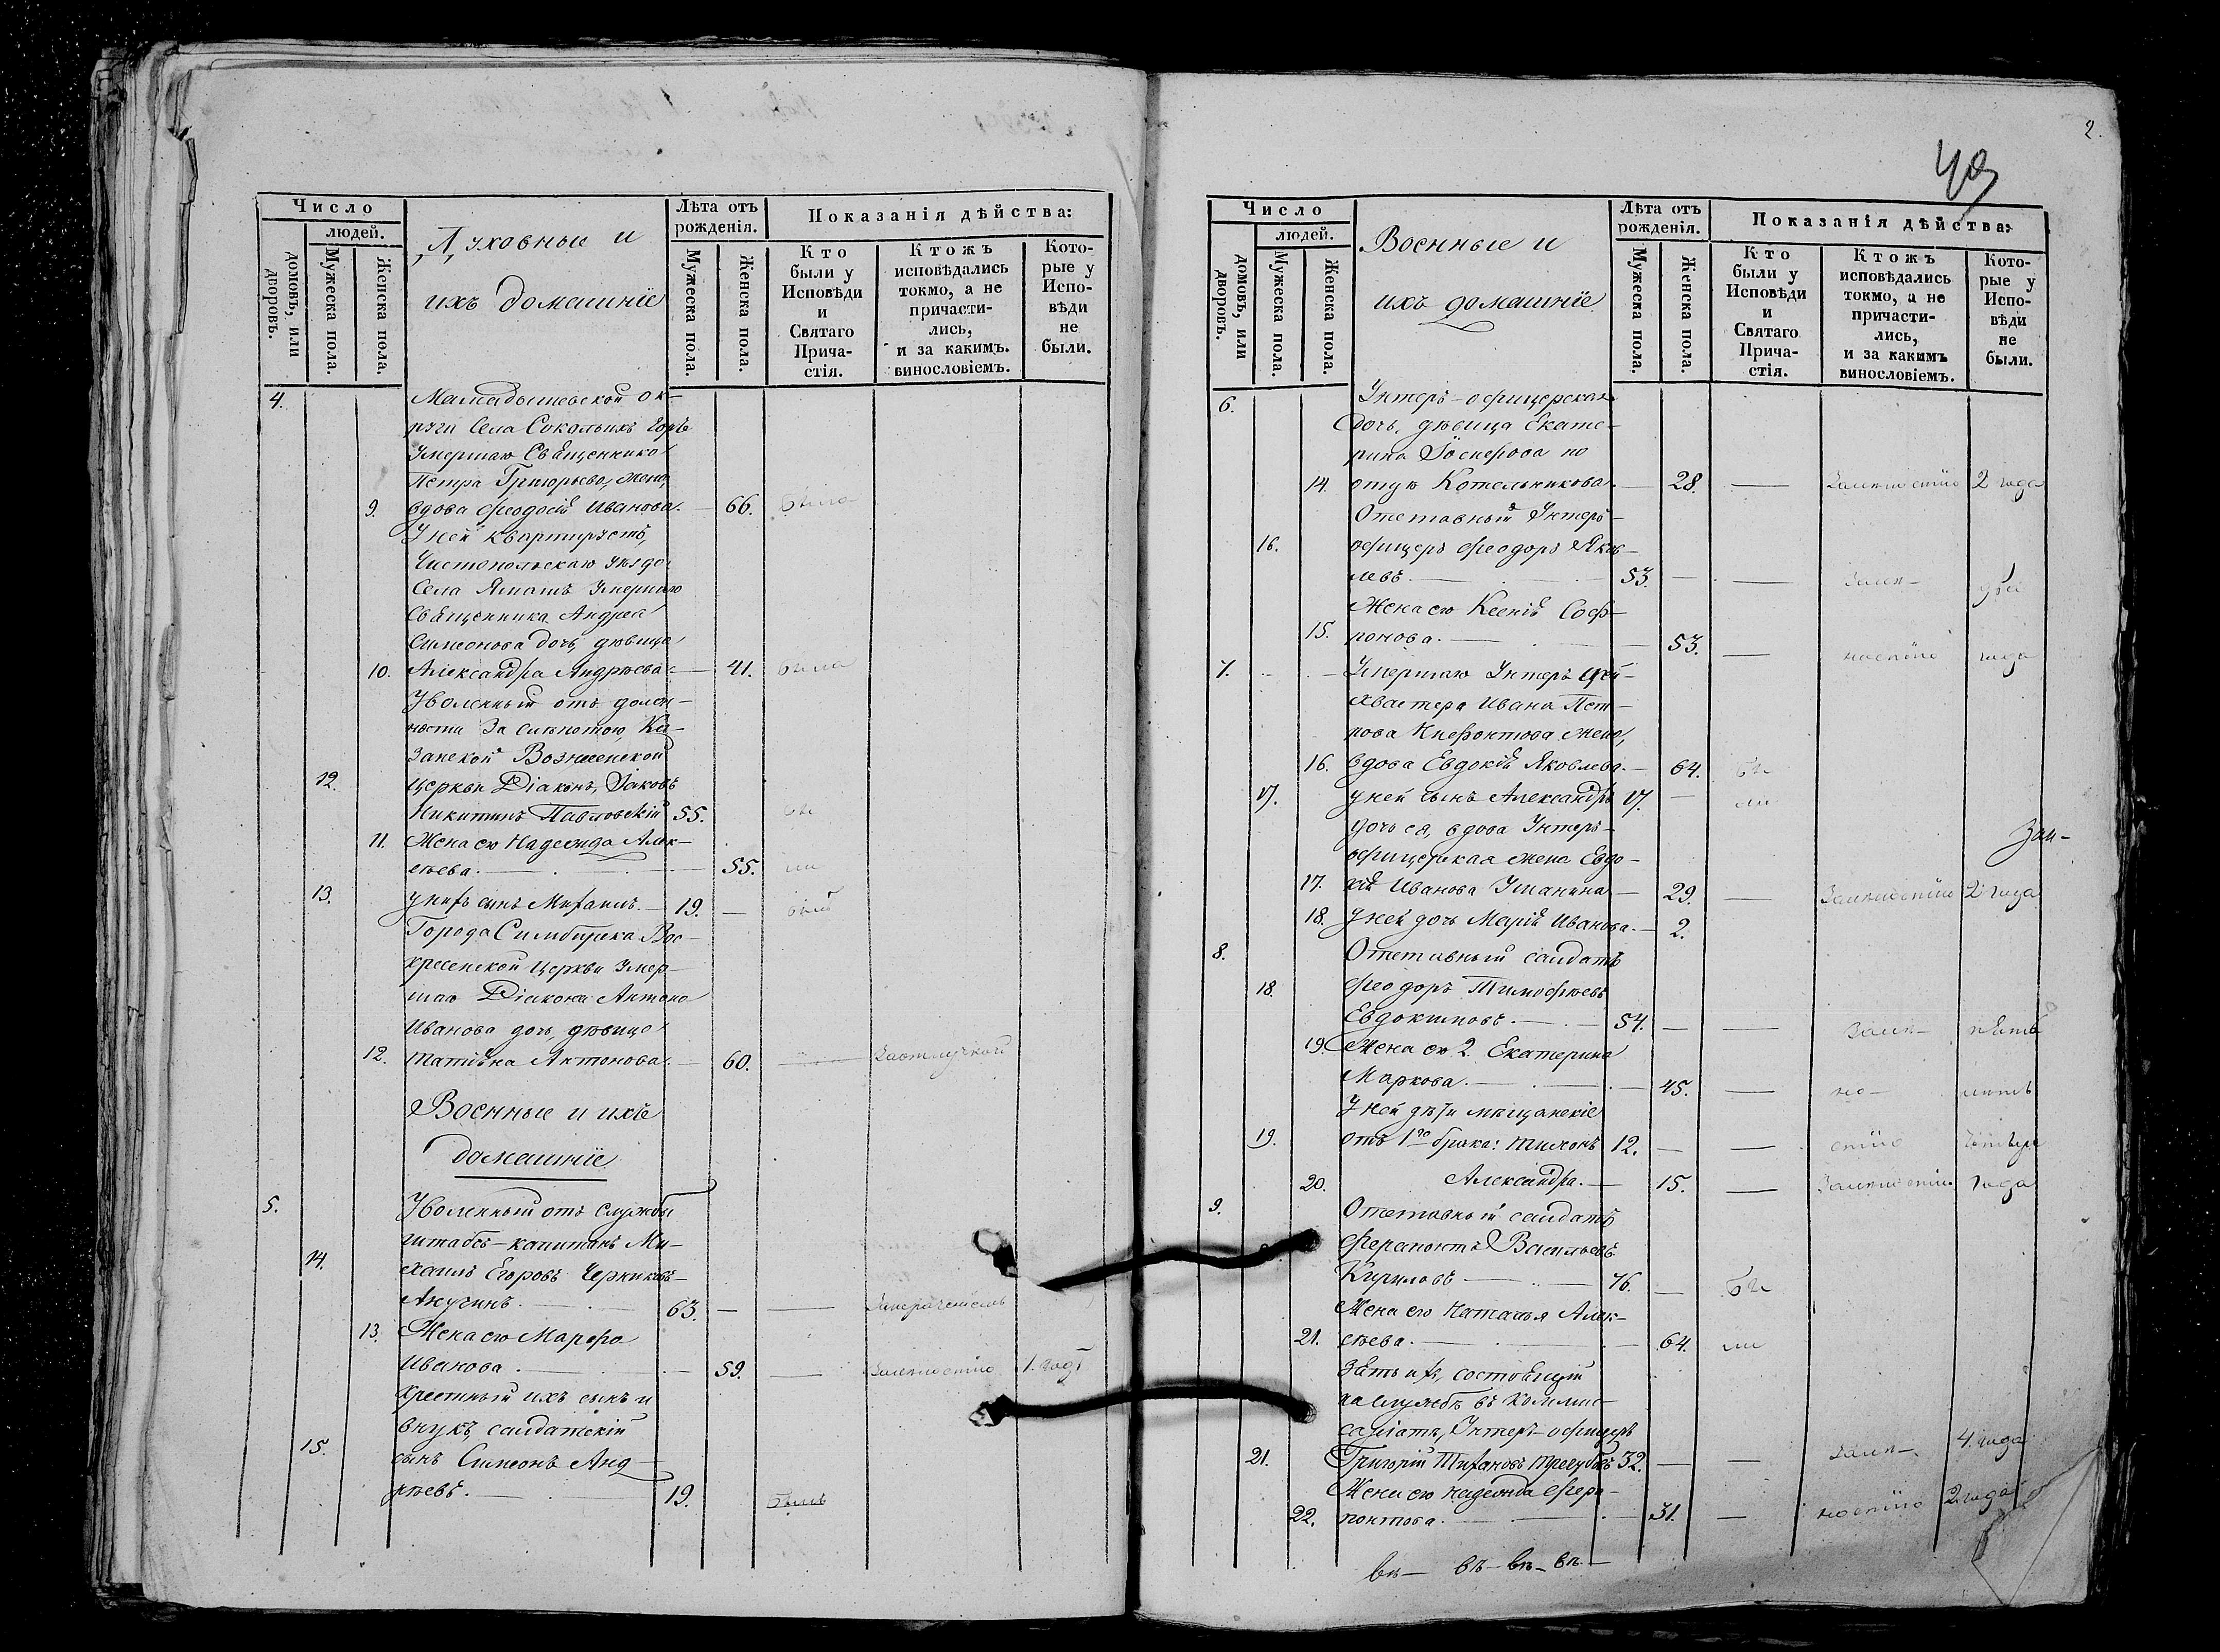 Число
людей.
домовъ, или дворовъ.
Мужеска пола.
Женска пола.
Духовные и
ихъ домашніе
Лѣта отъ рожденія.
Мужеска пола.
Женска пола.
Показанія дѣйства:
Кто были у Исповѣди и Святаго Прича-стія.
Ктожъ исповѣдались токмо, а не причасти-лись, и за какимъ. винословіемъ.
Кото-рые у Испо-вѣди не были.
4. Мамадышевской ок-
руги Села Сокольихъ Горъ
Умершаго Священника
Петра Григорьева, жена,
9. вдова Феодосія Иванова. — 66. была
У ней квартируетъ,
Чистопольскаго уѣзда
Села умершаго
Священника Андрея
Симеонова дочь, дѣвица
10. Александра Андрѣева. — 41. была
Уволенный отъ долж-
ности за слѣпотою, Ка-
занской Вознесенской
12. церкви Діаконъ, Іаковъ
Никитинъ Павловскій 55. бы
11. Жена его Надежда Алек-
сѣева. — 55. ли
13. у нихъ сынъ Михаилъ. — 19. — былъ
Города Симбирска Вос-
кресенской церкви умер-
шаго Діакона Антона
Иванова дочь, дѣвица
12. Татіяна Антонова. — 60. — За отлучкой
Военные и ихъ
домашніе
5. Уволенный отъ службы
штабсъ-капитанъ Ми-
14. хаилъ Егоровъ
Анучинъ. — 63. — —
13. Жена его Марфа
Иванова. — 59. — Заленностію 1. годъ
крестный ихъ сынъ и
внукъ, салдатскій
15. сынъ Симеонъ Анд-
рѣевъ. — 19. былъ
2.
Число
людей.
домовъ, или дворовъ.
Мужеска пола.
Женска пола.
Военные и
ихъ домашніе.
Лѣта отъ рожденія.
Мужеска пола.
Женска пола.
Показанія дѣйства:
Кто были у Исповѣди и Святаго Прича-стія.
Ктожъ исповѣдались токмо, а не причасти-лись, и за какимъ винословіемъ.
Кото-рые у Испо-вѣди не были.
6. Унтеръ-офицерская
дочь, дѣвица Екате-
рина Іосифова по
14. отцу Котельникова. — 28. — Заленностію 2 года
Отставный Унтеръ-
16. офицеръ Феодоръ Яков-
левъ. — 53. — — Зален- два
Жена его Ксенія Соф-
15. ронова. — 53. — ностію года
7. Умершаго Унтеръ Цей-
хвахтера Ивана Пет-
рова жена,
16. вдова Евдокія Яковлева. — 64. бы
17. у ней сынъ Александръ 17. — ли
дочь ея, вдова Унтеръ-
офицерская жена Евдо-
17. кія Иванова Уманина — 29. — Заленностію 2 года
18. у ней дочь Марія Иванова. — 2.
8. Отставный салдатъ
18. Феодоръ Тимофѣевъ
Евдокимовъ. — 54. — — Зален- пять
19. Жена его 2. Екатерина
Маркова. — 45. — но- лѣтъ
У ней дѣти мѣщанскіе
19. отъ 1го брака: Тихонъ 12. — — стію четыре
20. Александра. — 15. — Заленностію года
9. Отставный салдатъ
Ферапонтъ Васильевъ
Кириловъ — 76. — бы
Жена его Наталья Алек-
21. сѣева. — 64. ли
Зять ихъ, состоящій
на службѣ въ коммис-
саріатѣ, Унтеръ-офицеръ
21. Григорій 32. — — Зален- 4. года
Жена его Надежда Фера-
22. понтова. — 31. — ностію 2 года